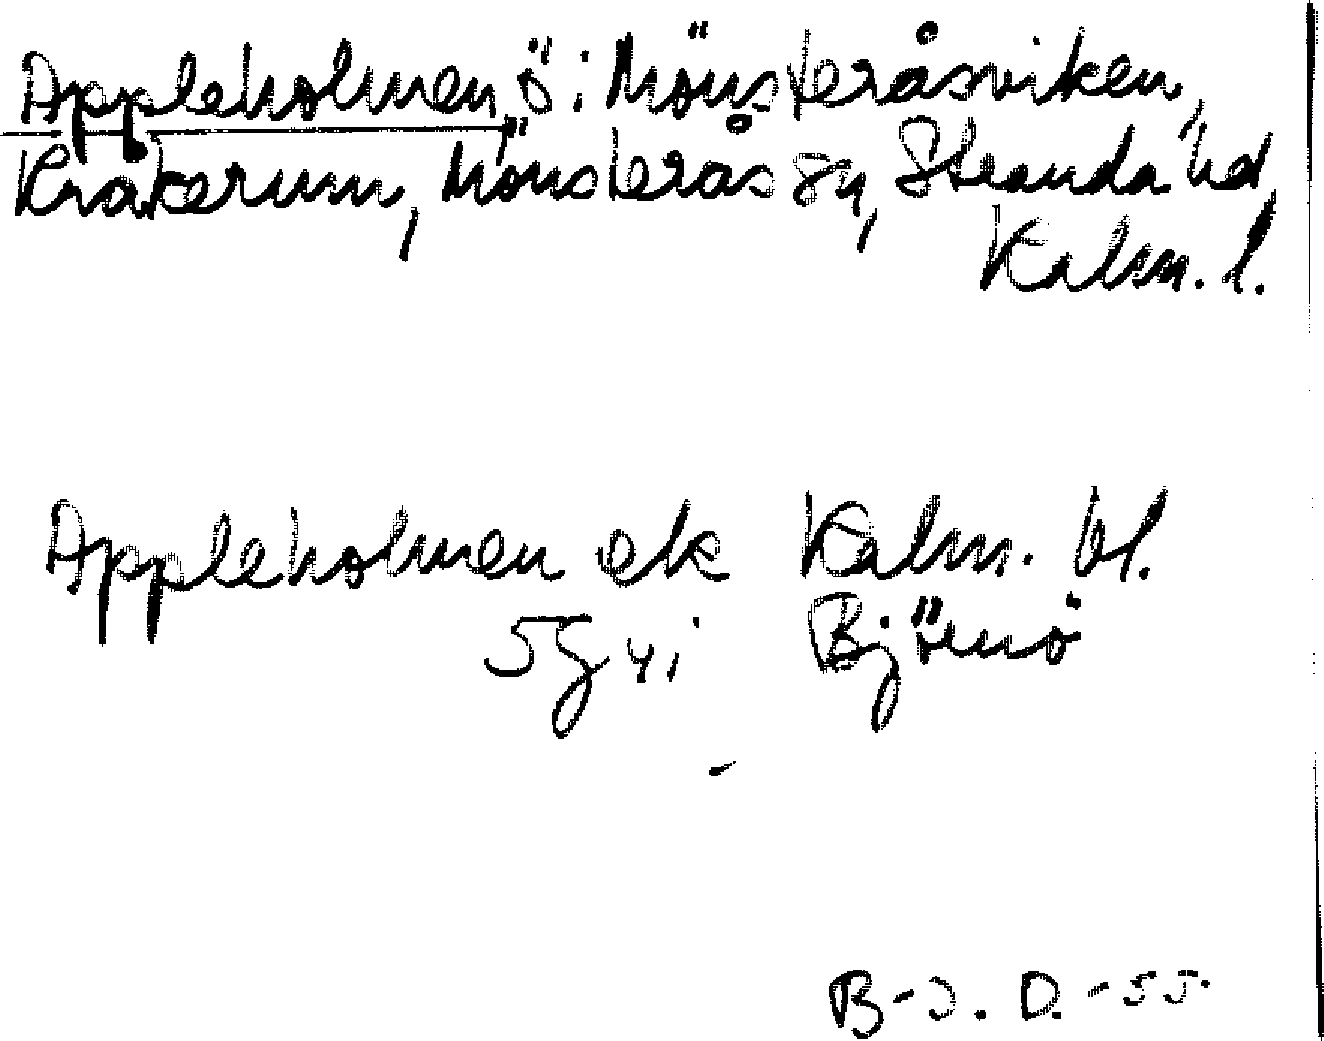 Appleholmen, ö i Mönsteråsviken,
Kråkerum, Mönsterås sn, Stranda hd,
Kalm. l.
Appleholmen ek Kalm. bl.
5g 4i Björnö
B-J. D. -55.